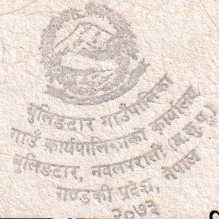 धुलिङटार गाउँपालिका
गाउँ कार्यपालिकाको कार्यालय
धुलिङटार, नवलपरासी (ब.सु.पू.)
गण्डकी प्रदेश, नेपाल
२०७३